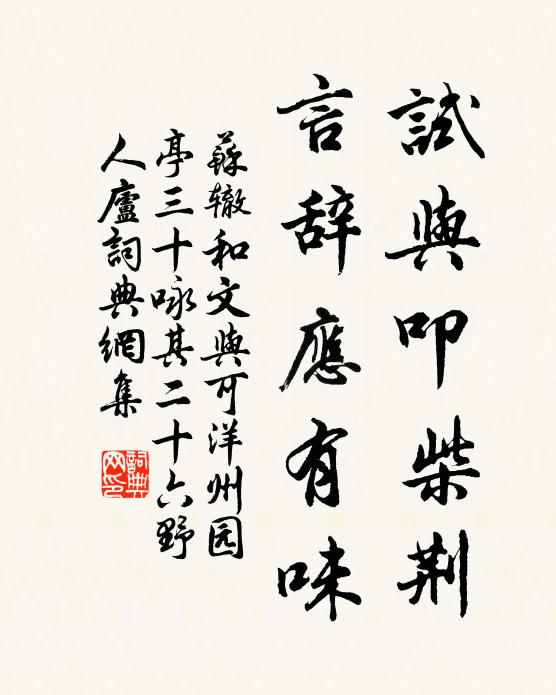 試與叩柴荆
言辞應有味
蘇辙和文與可洋州园
亭三十咏其二十六野
人廬詞典網集
詞典网印